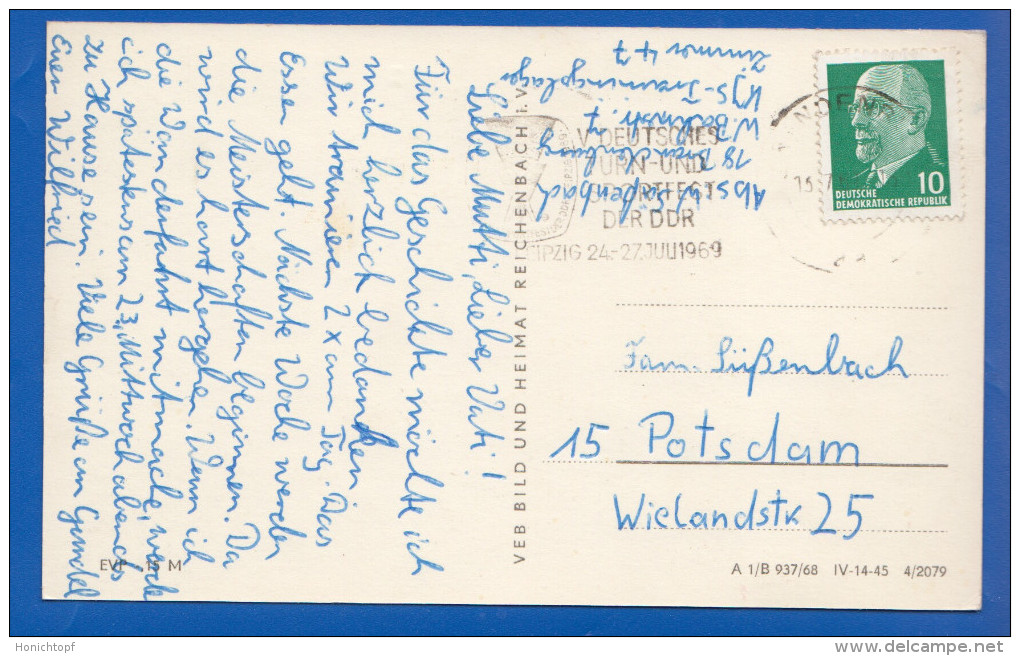 Liebe Mutti, Lieber Vati!
Für das Geschichte möchte ich
mich herzlich bedanken.
Wir trainieren 2x am Tag. Das
Essen geht. Nächste Woche werden
die Meisterschaften beginnen. Da
wird es hart hergehen. Wenn ich
die Wanderfahrt mitmache, werde
ich spätestens am 23., Mittwoch abends
zu Hause sein. Viele Grüße an Gundel
Euer Wilfried
Abs. W. Süßenbach
18 Brandenburg
KJS-Trainingslager
Zimmer 47
V. DEUTSCHES
TURN-UND
SPORTFEST
DER DDR
LEIPZIG 24.-27. JULI 1969
DEUTSCHE
DEMOKRATISCHE REPUBLIK 10
VEB BILD UND HEIMAT REICHENBACH i. V.
Fam. Süßenbach
15 Potsdam
Wielandstr. 25
EVP 15 M
A 1/B 937/68 IV-14-45 4/2079
Honichtopf
www.delcampe.net